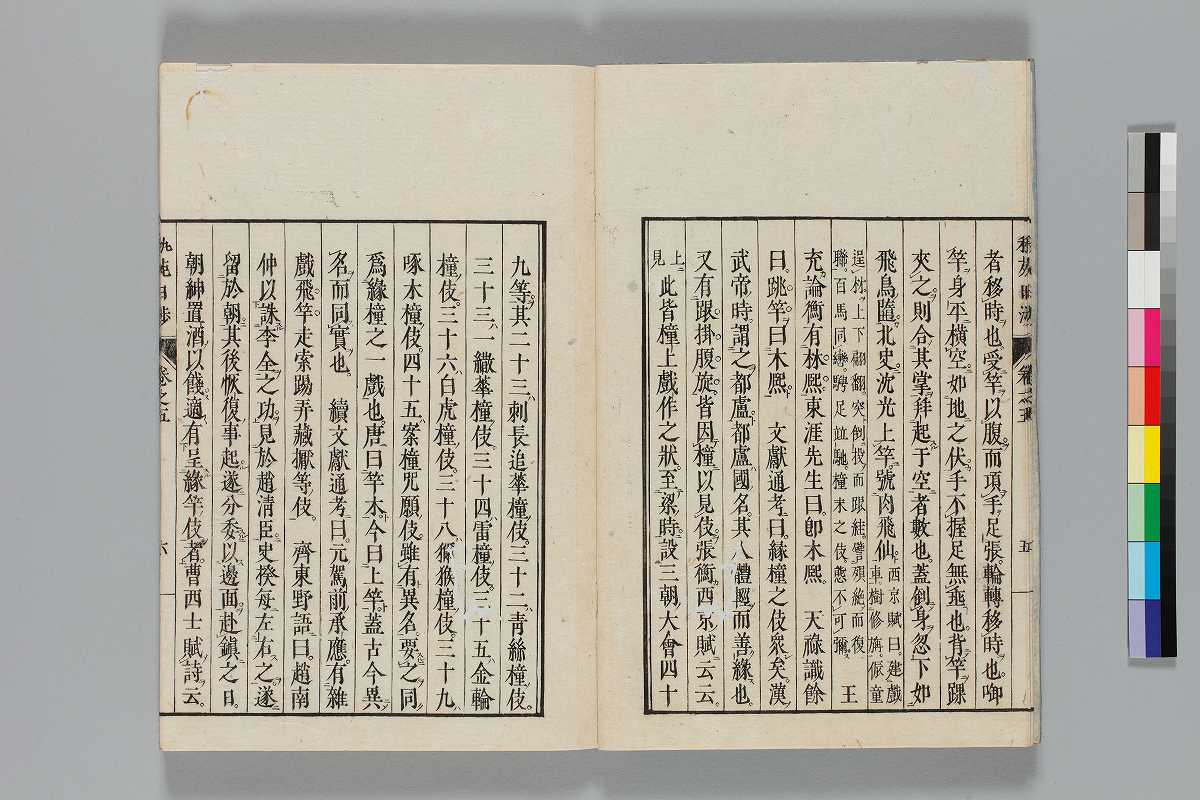 者移時也受竿以腹而項手足張輪轉移時也啣
竿身平橫空如地之伏手不握足無垂也背竿踝
夾之則合其掌拜起于空者數也蓋倒身忽下如
飛鳥墮北史沈光上竿號肉飛仙西京賦曰建戲車樹修旃侲童
逞材上下翩翻突倒投而跟絓譬殞絕而復聯百馬同轡騁足竝馳橦末之伎態不可彌 王
充論衡有林熈東涯先生曰卽木熈 天祿識餘
曰跳竿曰木熈 文獻通考曰緣橦之伎衆矣漢
武帝時謂之都盧都盧國名其人體輕而善緣也
又有跟掛腹旋皆因橦以見伎張衡西京賦云云
上見 此皆橦上戲作之狀至梁時設三朝大會四十
卷之五
五
九等其二十三刺長追蕐橦伎三十二靑絲橦伎
三十三一繖蕐橦伎三十四雷橦伎三十五金輪
橦伎三十六白虎橦伎三十八獼猴橦伎三十九
啄木橦伎四十五案橦咒願伎雖有異名要之同
爲緣橦之一戲也唐曰竿木今曰上竿蓋古今異
名而同實也 續文獻通考曰元駕前承應有雜
戲飛竿走索踢弄藏擫等伎 齊東野語曰趙南
仲以誅李全之功見於趙淸臣史揆每左右之遂
留於朝其後恢復事起遂分委以邊面赴鎭之日
朝紳置酒以餞適有呈緣竿伎者曹西士賦詩云
卷之五
六